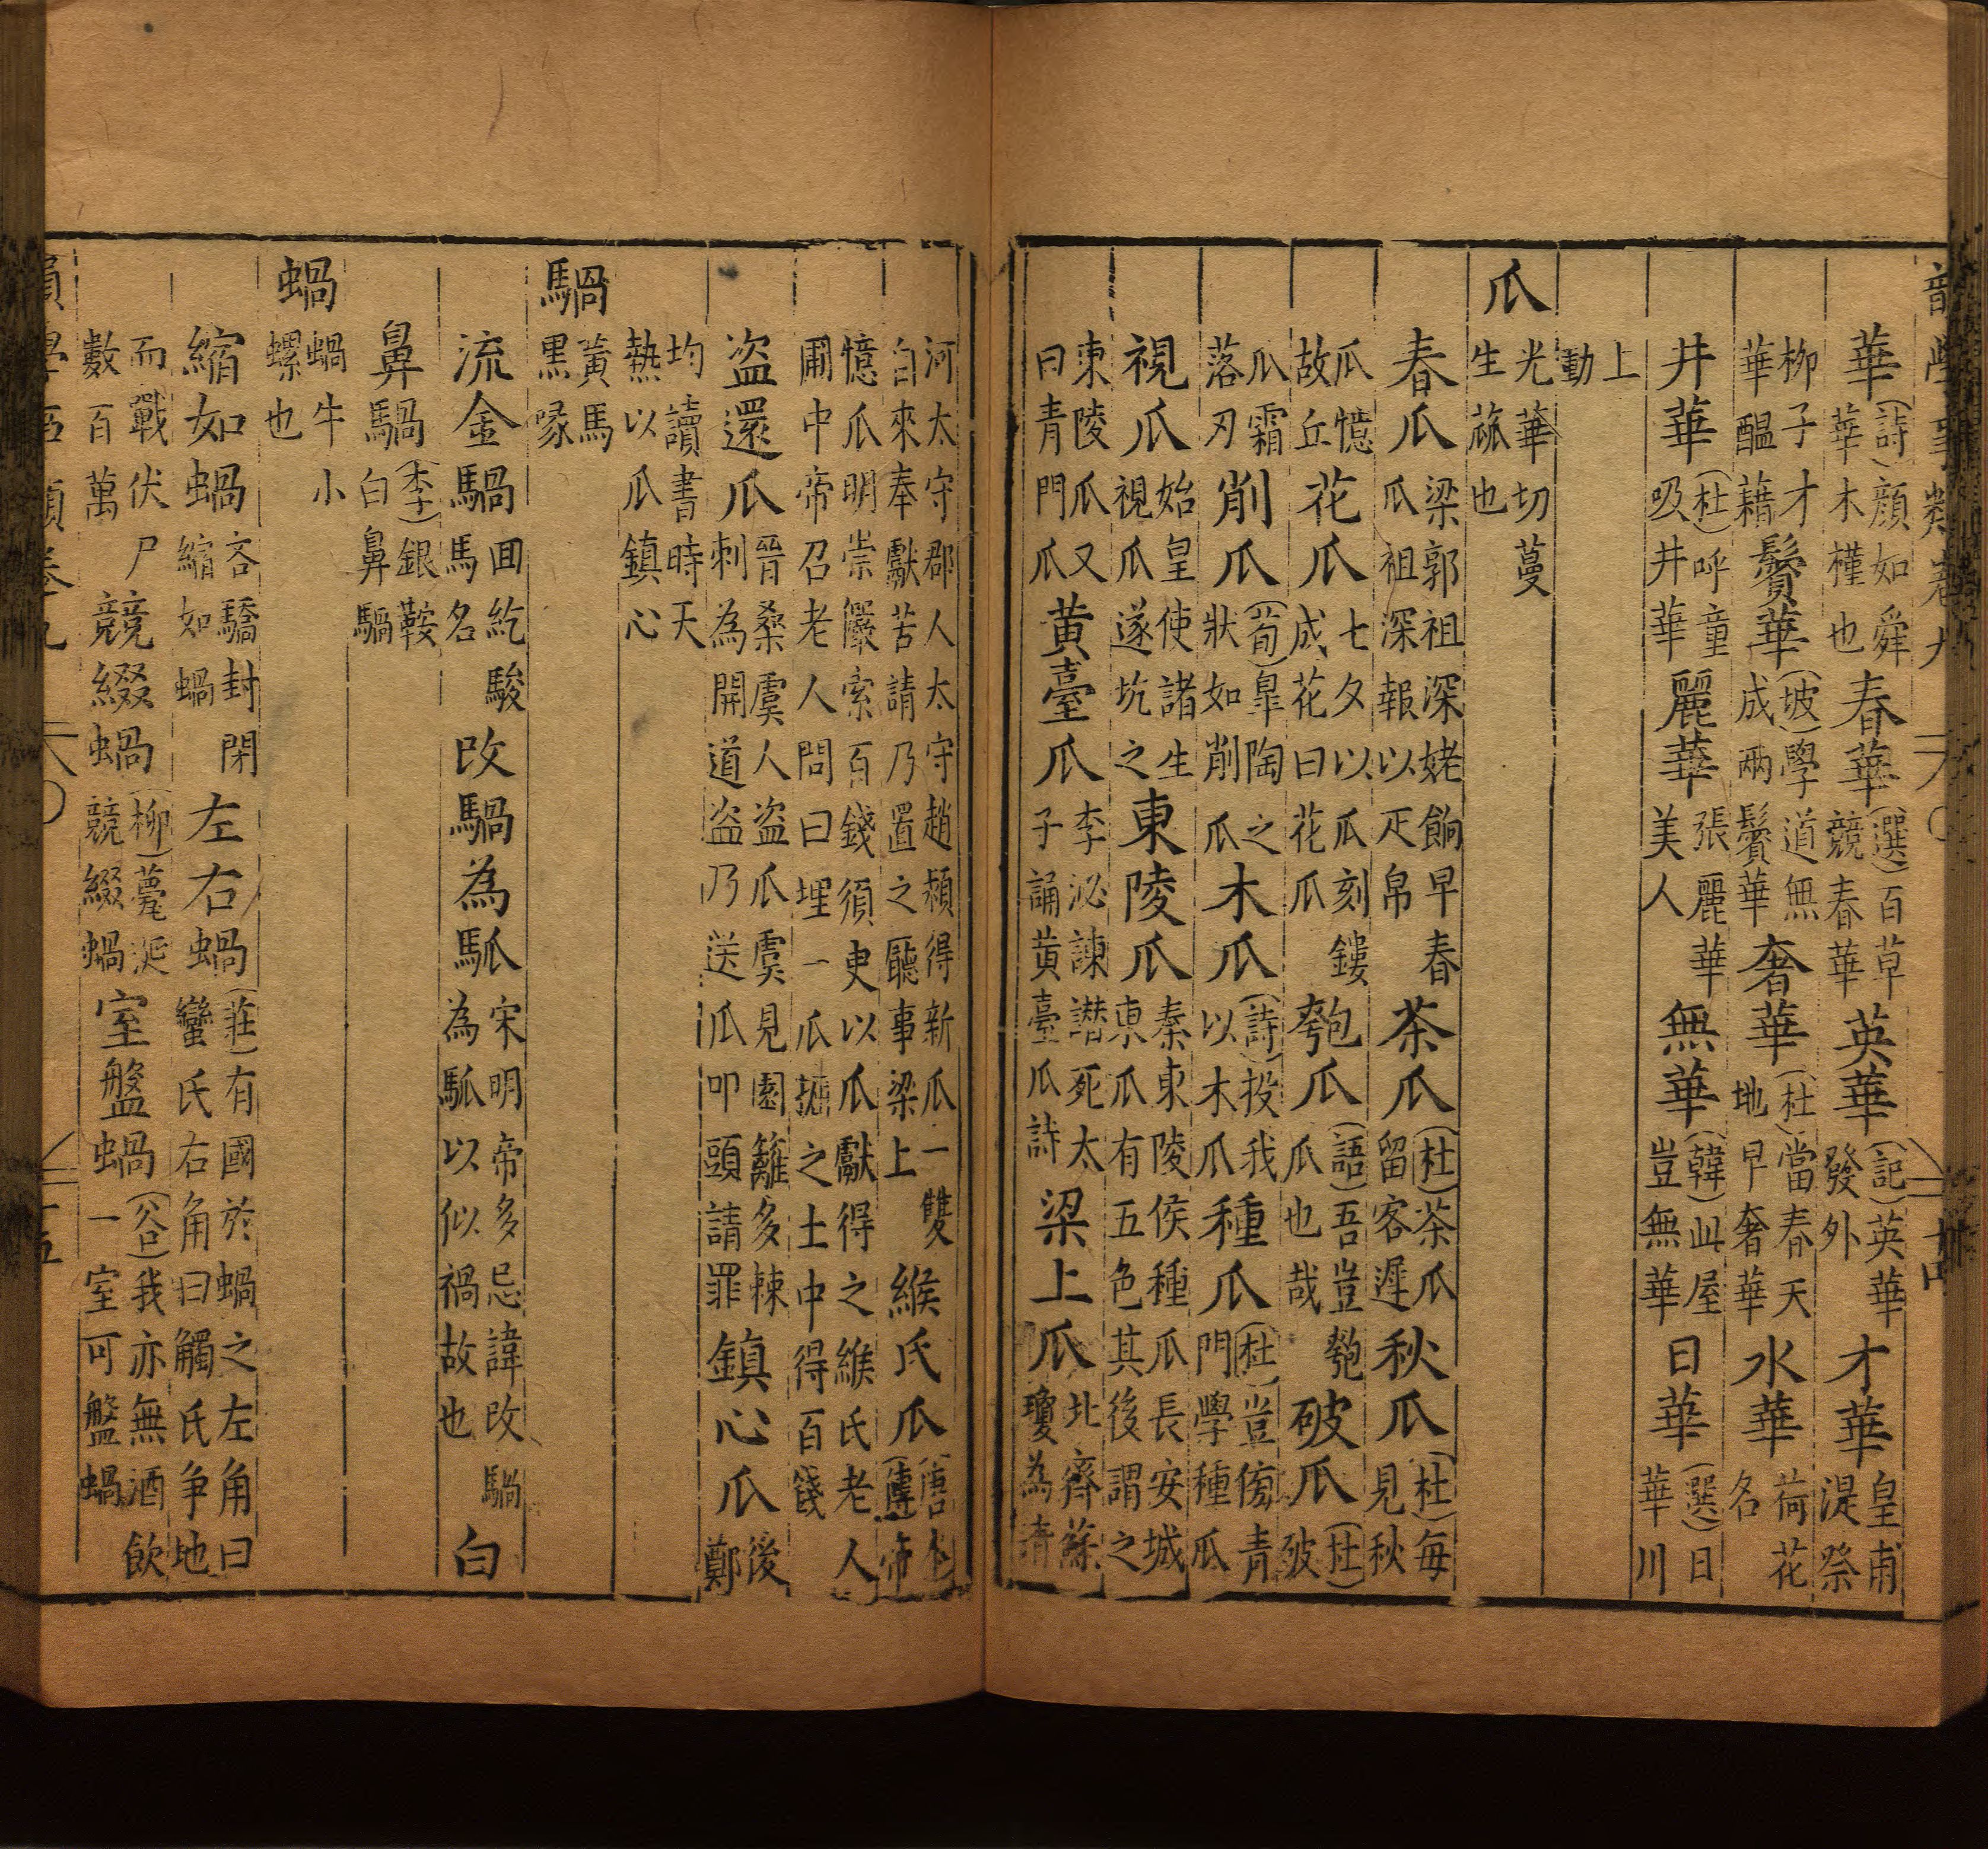 華(詩)顏如舜華木槿也春華(選)百草競春華英華(記)英華發外才華皇甫湜祭
柳子才華醞藉鬢華(坡)學道無成兩鬢華奢華(杜)當春天地早奢華水華荷花名
井華(杜)呼童吸井華麗華張麗華美人無華(韓)此屋豈無華日華(選)日華川
上動
瓜光華切蔓生蓏也
春瓜梁郭祖深姥餉早春瓜祖深報以疋帛茶瓜(杜)茶瓜留客遲秋瓜(杜)每見秋
瓜憶故丘花瓜七夕以瓜刻鏤成花曰花瓜匏瓜(語)吾豈匏瓜也哉破瓜(杜)破
瓜霜落刃削瓜(荀)皐陶之狀如削瓜木瓜(詩)投我以木瓜種瓜(杜)豈傍青門學種瓜
視瓜始皇使諸生視瓜遂坑之東陵瓜秦東陵侯種瓜長安城東瓜有五色其後謂之
東陵瓜又曰青門瓜黄臺瓜李泌諫譖死太子誦黄臺瓜詩梁上瓜北齊蘇瓊為清
河太守郡人太守趙頴得新瓜一雙自來奉獻苦請乃置之廳事梁上緱氏瓜(唐本傳)帝
憶瓜明崇儼索百錢須臾以瓜獻得之緱氏老人圃中帝召老人問曰埋一瓜摭之土中得百錢
盜還瓜晉桑虞人盜瓜虞見園籬多棘刺為開道盜乃送瓜叩頭請罪鎮心瓜後鄭
均讀書時天熱以瓜鎮心
騧黃馬黑喙
流金騧回紇駿馬名改騧為䯄宋明帝多忌諱改騧為䯄以似禍故也白
鼻騧(李)銀鞍白鼻騧
蝸蝸牛小螺也
縮如蝸吝驕封閉縮如蝸左右蝸(莊)有國於蝸之左角曰蠻氏右角曰觸氏爭地
而戰伏尸數百萬競綴蝸(柳)甍涎競綴蝸室盤蝸(谷)我亦無酒飲一室可盤蝸